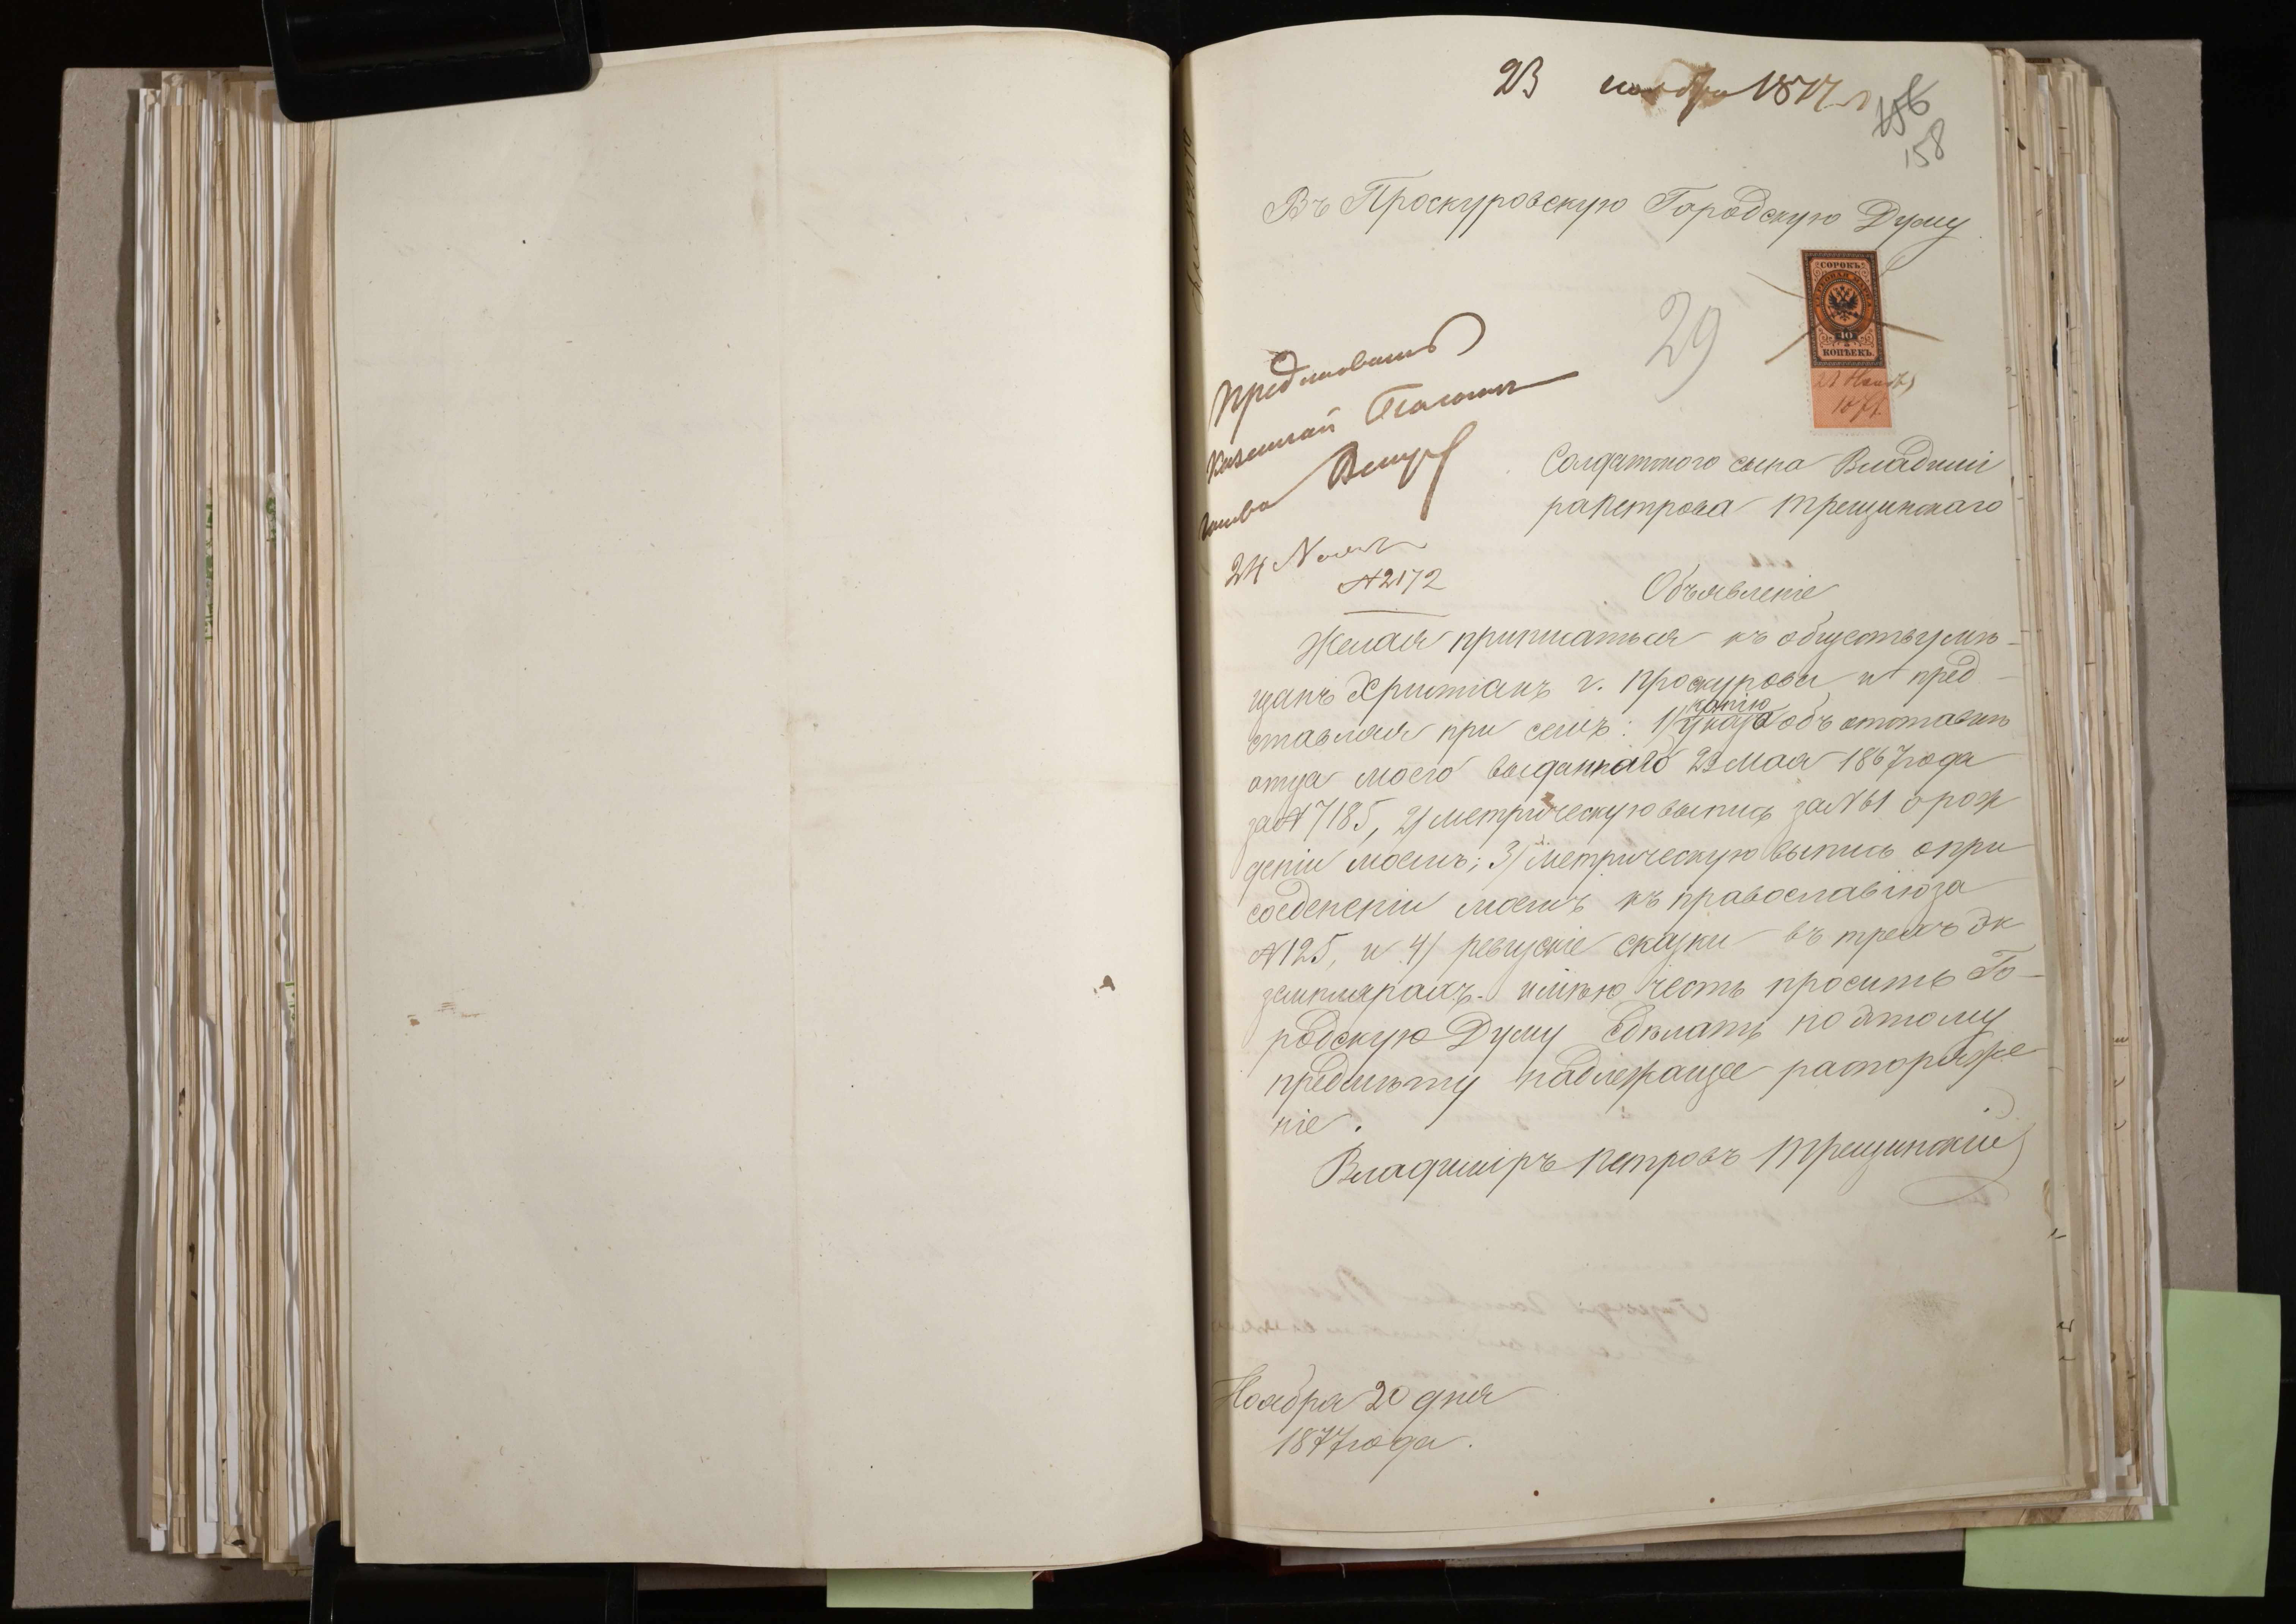 23 ноября 1877 г
156
158
Въ Проскуровскую Городскую Думу
СОРОКЪ
ГЕРБОВАЯ МАРКА
40
КОПѢЕКЪ.
29
Казенной
24 Нояб
№ 2172
Солдатского сына Владимі
ра Петрова Трещинскаго
Объявленіе
Желая приписаться къ обществу мѣ-
щанъ Христіанъ г. Проскурова и пред-
копію
ставляя при семъ: 1) Указа объ отставкѣ
отца моего выданнаго 23 Мая 1867 года
за № 7185, 2) метрическую выпись за № 61 о рож
деніи моемъ; 3) Метрическую выпись о при
соеденіи моемъ къ православію за
№ 125, и 4) ревизскіе сказки въ трехъ эк
земплярахъ. имѣю честь просить Го-
родскую Думу сдѣлать по этому
предмѣту надлежащее распоряже
ніе.
Владиміръ Петровъ Трещинскій
Ноября 20 дня
1877 года.